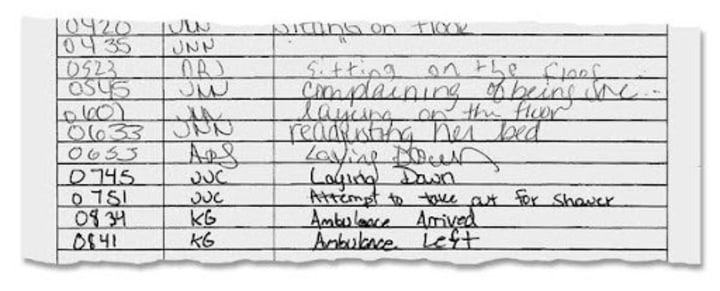 0420 JNN Sitting on floor
0435 JNN " "
0523 sitting on the floor
0545 JNN complaining of being
0607 laying on the floor
0633 JNN readjusting her bed
0653 Laying Down
0745 JJC Laying Down
0751 JJC Attempt to take out for shower
0834 KG Ambulance Arrived
0841 KG Ambulance Left